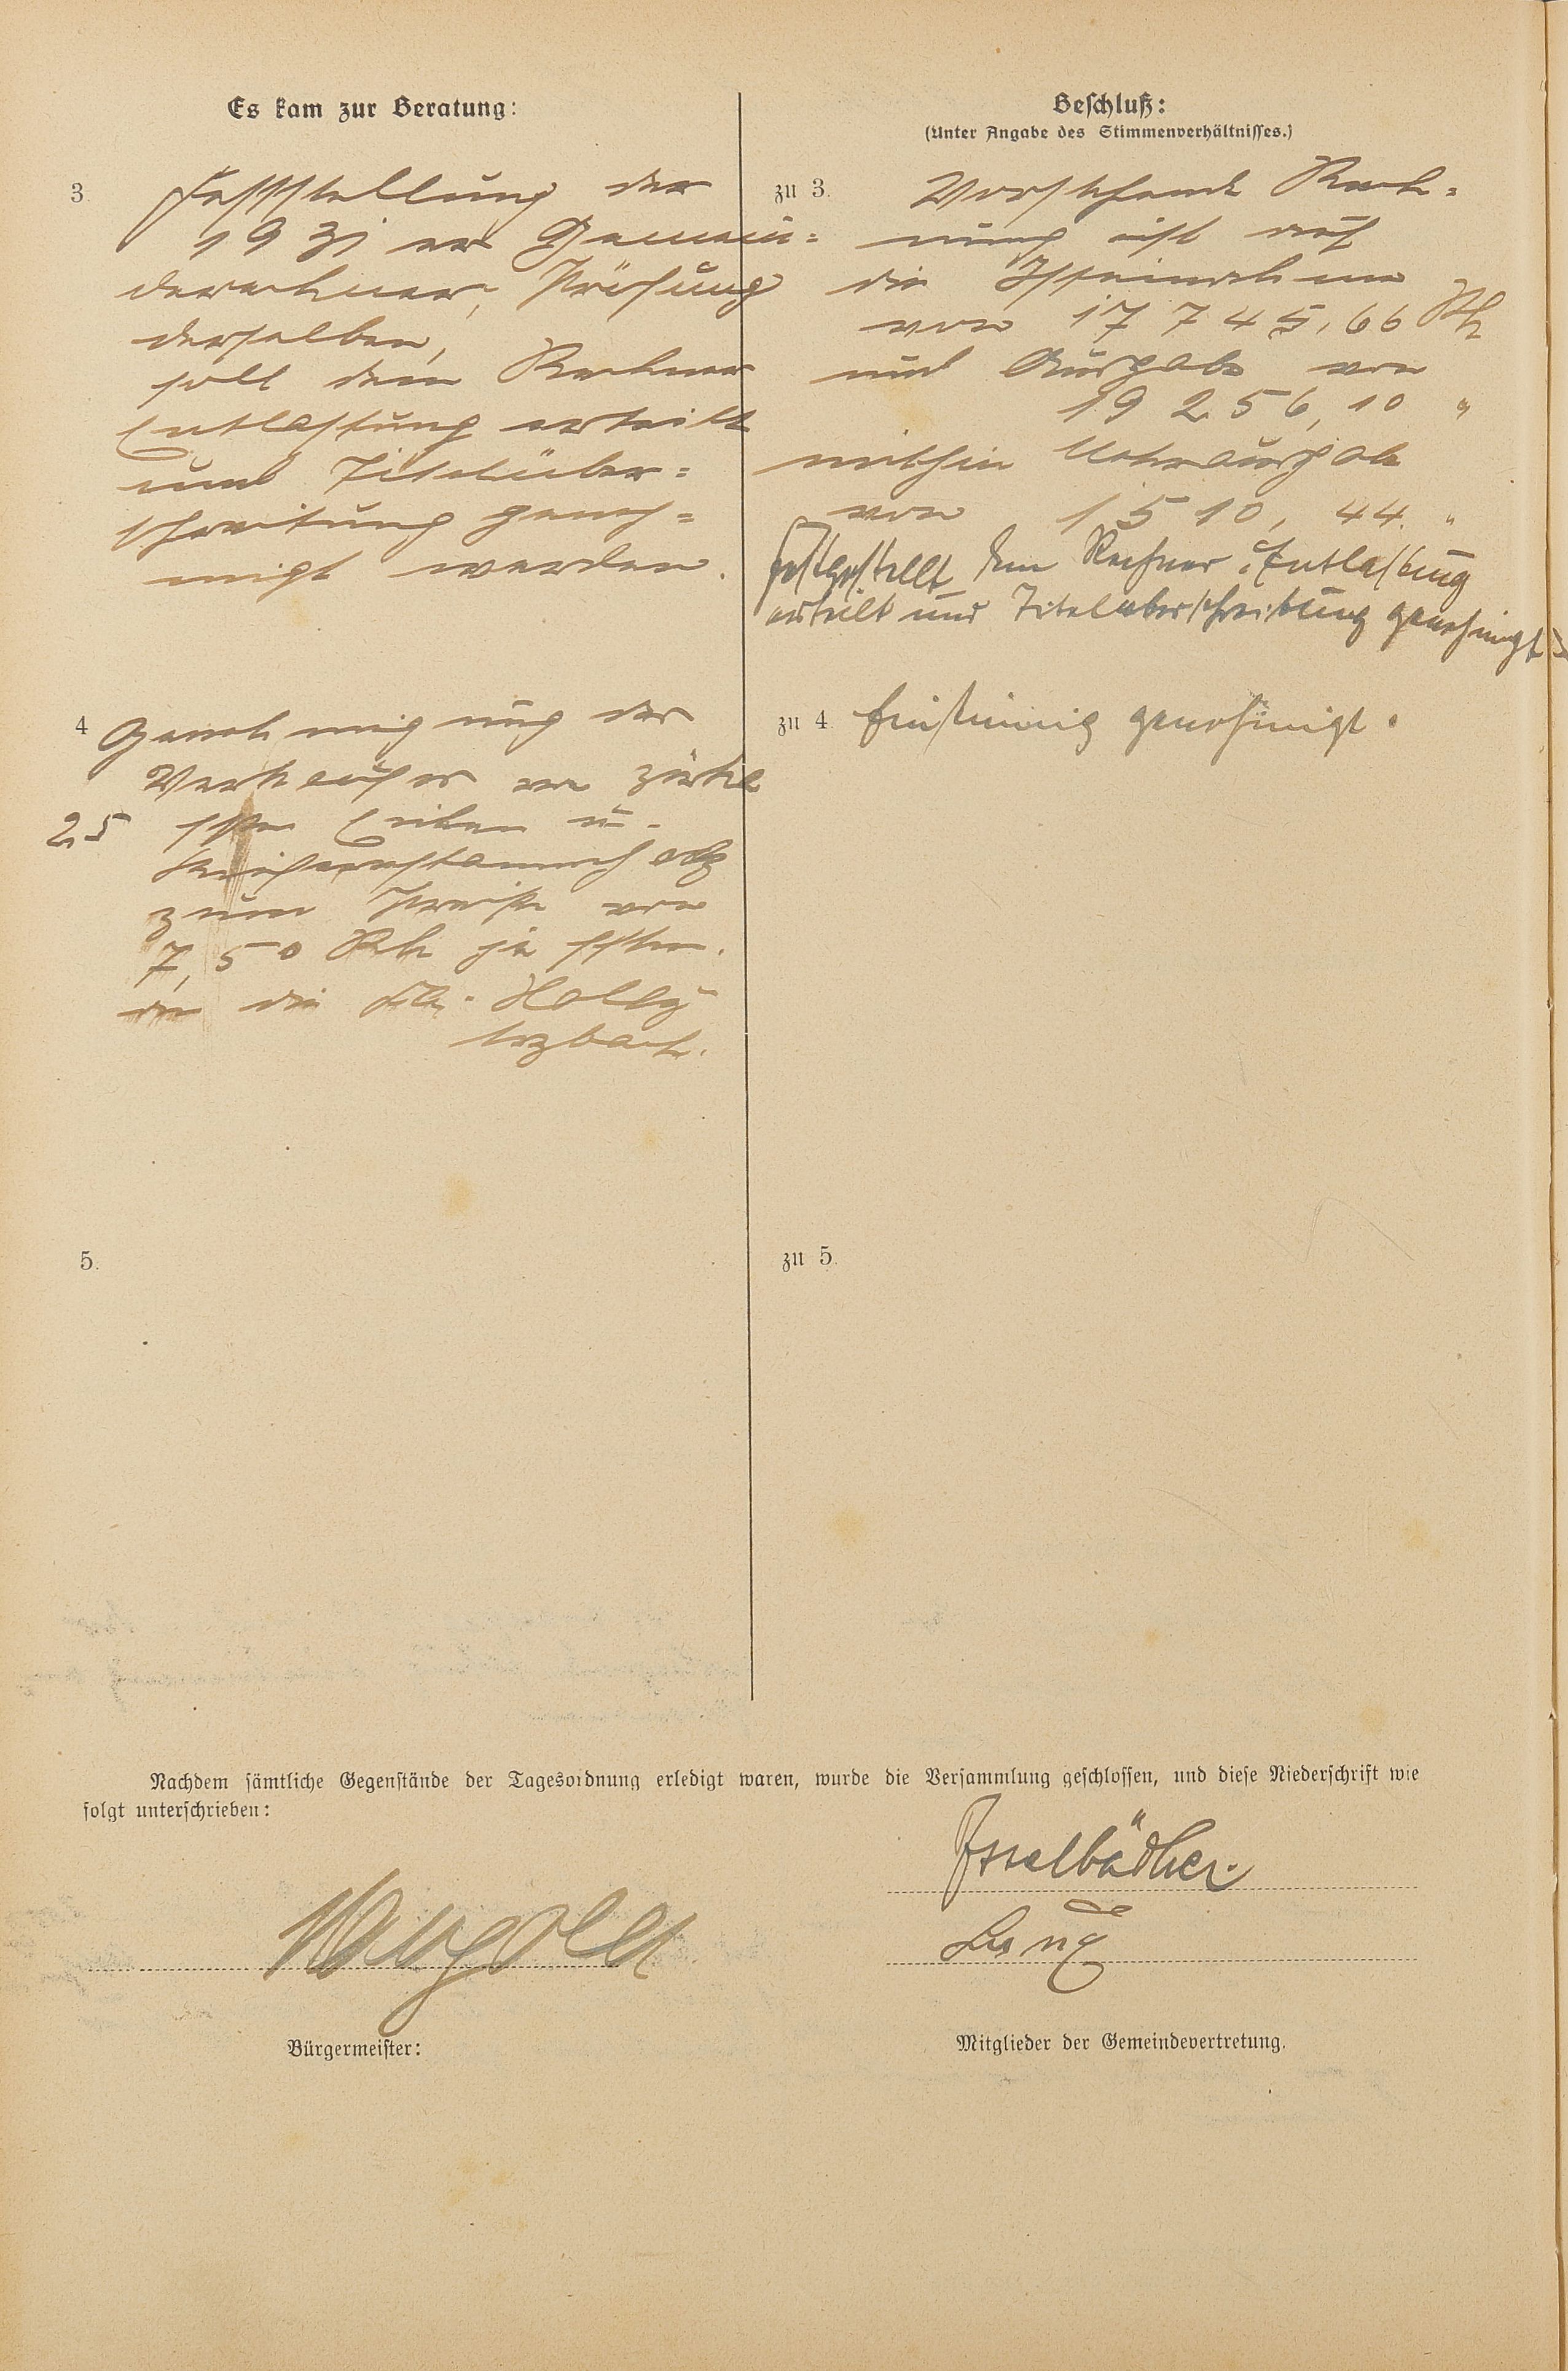 Es kam zur Beratung:
3. Feststellung der
1931 er Gemein=
derechner, Prüfung
derselben,
soll dem Rechner
Entlastung erteilt
und Titelüber=
schreitung geneh=
migt werden.
4 Genehmigung des
Verkaufes von zirka
25 fstm Eichen u.
Kiefernstammholz
zum Preise von
7,50 Rm je fstm.
an die Fa.
5.
Beschluß:
(Unter Angabe des Stimmenverhältnisses.)
zu 3. Vorstehende Rech=
nung ist auf
die Isteinnahme
von 17 745,66 Rm
und Ausgabe von
19 256,10 "
mithin Mehrausgabe
von 1510,44. "
festgestellt dem Rechner Entlastung
erteilt und Titelüberschreitung genehmigt
zu 4. Einstimmig genehmigt.
zu 5.
Nachdem sämtliche Gegenstände der Tagesordnung erledigt waren, wurde die Versammlung geschlossen, und diese Niederschrift wie
folgt unterschrieben:
Isselbächer.
Lang
Bürgermeister:
Mitglieder der Gemeindevertretung.